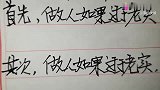 首先,做人如果过于老实,
其次,做人如果过于老实,